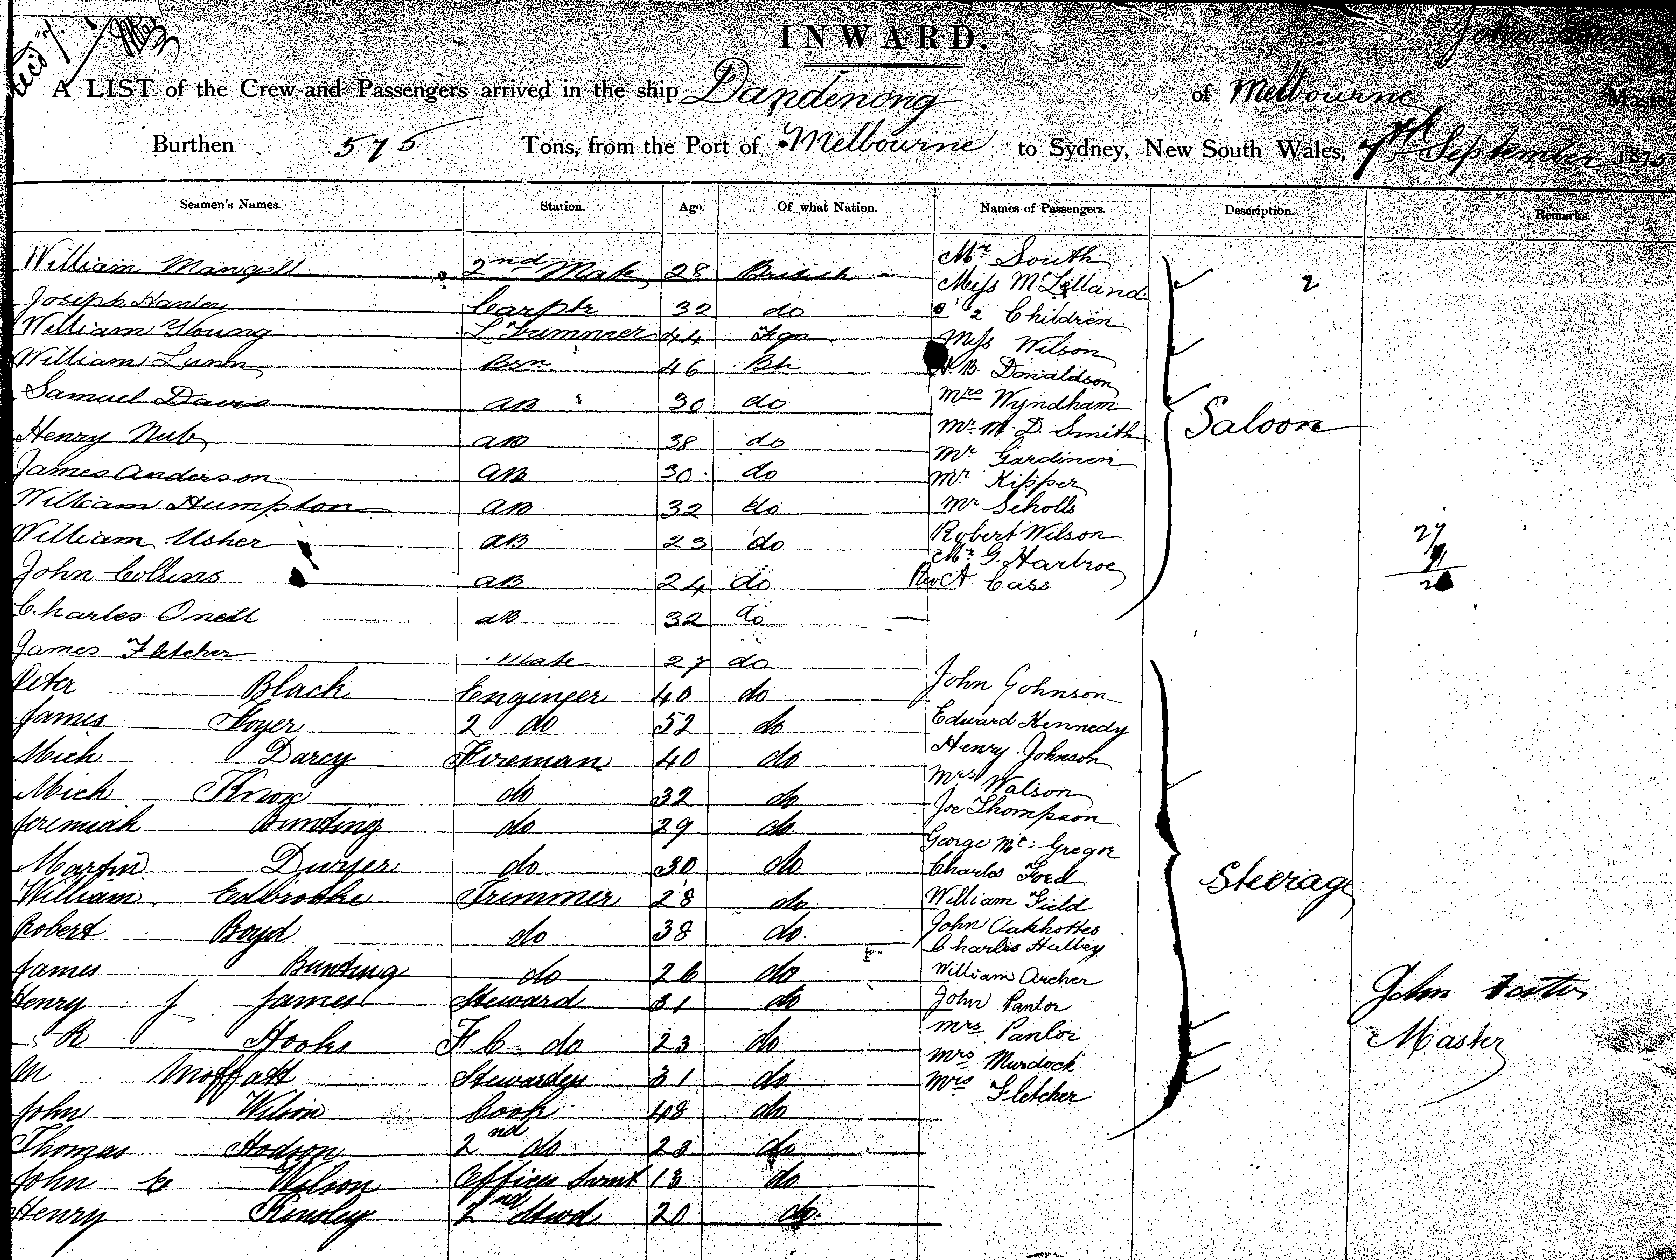 INWARD.
A LIST of the Crew and Passengers arrived in the ship Dandenong of Melbourne
Burthen 575 Tons, from the Port of Melbourne to Sydney, New South Wales, 7th September 187
Seamen's Names. Station. Age. Of what Nation. Names of Passengers. Description. Remarks.
William Mangell 2nd Mate 28 British
Joseph Hanley Carptr 32 do
William Young L Trimmer 44 Fgn
William Lunn Bsn 46 Bh
Samuel Davis AB 30 do
Henry Nub AB 38 do
James Anderson AB 30 do
William Humpton AB 32 do
William Usher AB 23 do
John Collins AB 24 do
Charles Oneill AB 32 do
James Fletcher Mate 27 do
Peter Black Engineer 40 do
James Foyer 2 do 52 do
Mich Darcy Fireman 40 do
Mich Knox do 32 do
Jeremiah Bunting do 29 do
Martin Dwyer do 30 do
William Edbrooke Trimmer 28 do
Robert Boyd do 38 do
James Bunting do 26 do
Henry J James Steward 31 do
R Hooks F C do 23 do
M Moffatt Stewardess 31 do
John Wilson Cook 48 do
Thomas Hodson 2nd do 23 do
John E Wilson Officers Servt 18 do
Henry Kinsley 2nd Stwd 20 do
Mr South
Miss McLelland
2 Children
Miss Wilson
B Donaldson
Mrs Wyndham
Mr M D Smith
Mr Gardiner
Mr Kipper
Mr Scholls
Robert Wilson
Mr G Harbroe
Revd A Cass
Saloon
2
27
John Johnson
Edward Kennedy
Henry Johnson
Mrs Walson
Joe Thompson
George McGregor
Charles Ford
William Field
John Oakhottes
Charles Halley
William Archer
John Pantor
Mrs Pantor
Mrs Murdock
Mrs Fletcher
Steerage
John
Master